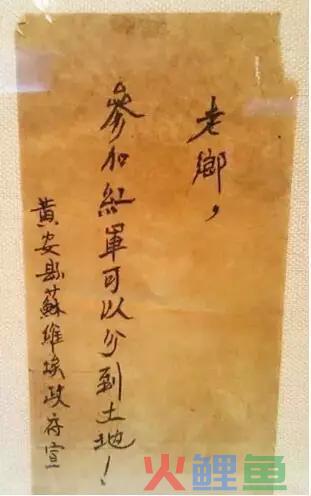 老鄉，
參加紅軍可以分到土地！
黃安縣蘇維埃政府宣
火鲤鱼